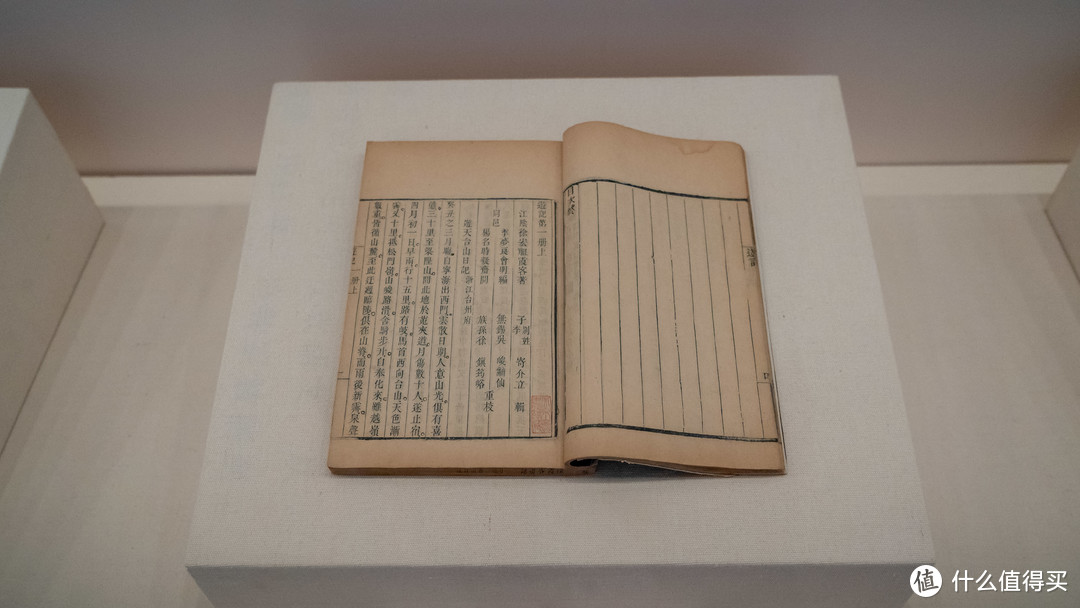 目次終
遊記第一册上
江陰徐宏祖霞客著 子 李 寄介立 輯
同邑
李夢良會明編 無錫吳 峻 仙
楊名時凝齋閱 族孫徐 鎮筠峪 重校
遊天台山日記 浙江台州府
癸丑之三月晦。自寧海出西門。雲散日朗。人意山光。俱有喜
態。三十里至梁隍山。聞此地於菟夾道。月傷數十人。遂止宿。
四月初一日早雨。行十五里。路有岐。馬首西向台山。天色漸
霽。又十里。抵松門嶺。山峻路滑。舍騎步行。自奉化來。雖越嶺
數重。皆循山麓。至此迂迴臨陟。俱在山脊。而雨後新霽。泉聲
遊記 一册上
值 什么值得买